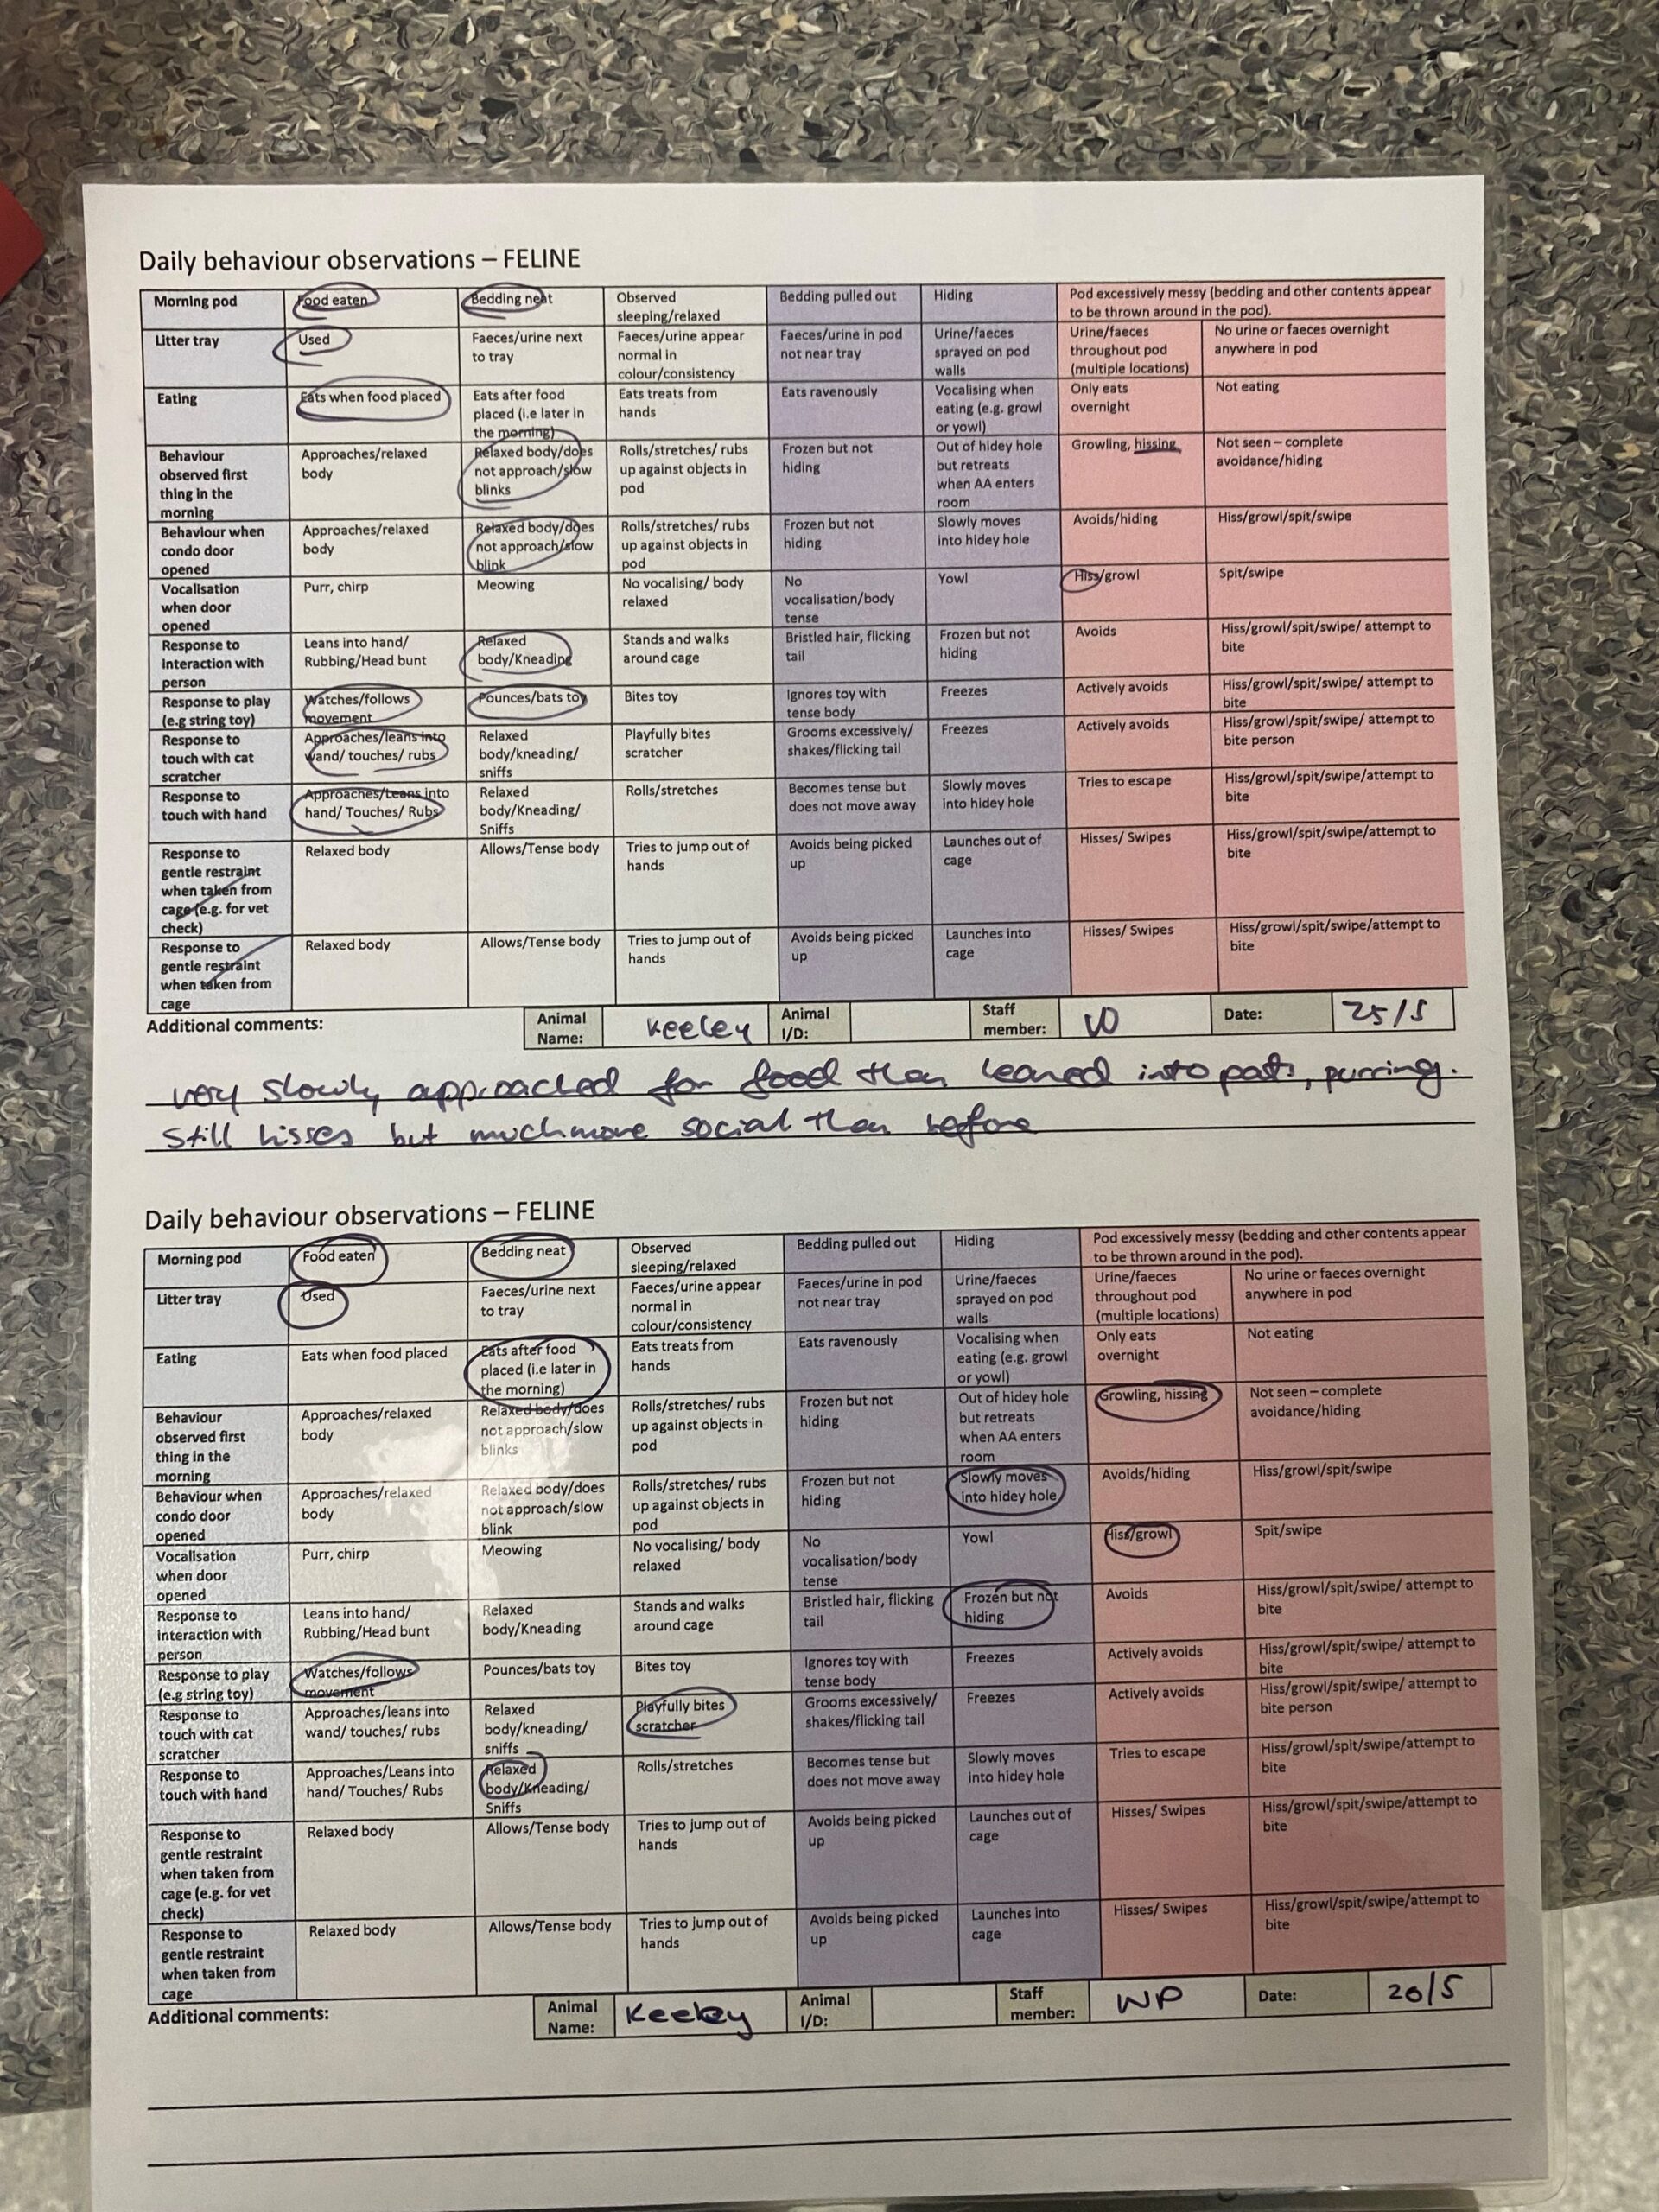 Daily behaviour observations – FELINE
Morning pod
Food eaten
Bedding neat
Observed
sleeping/relaxed
Bedding pulled out
Hiding
Pod excessively messy (bedding and other contents appear
to be thrown around in the pod).
Litter tray
Used
Faeces/urine next
to tray
Faeces/urine appear
normal in
colour/consistency
Faeces/urine in pod
not near tray
Urine/faeces
sprayed on pod
walls
Urine/faeces
throughout pod
(multiple locations)
No urine or faeces overnight
anywhere in pod
Eating
Eats when food placed
Eats after food
placed (i.e later in
the morning)
Eats treats from
hands
Eats ravenously
Vocalising when
eating (e.g. growl
or yowl)
Only eats
overnight
Not eating
Behaviour
observed first
thing in the
morning
Approaches/relaxed
body
Relaxed body/does
not approach/slow
blinks
Rolls/stretches/ rubs
up against objects in
pod
Frozen but not
hiding
Out of hidey hole
but retreats
when AA enters
room
Growling, hissing
Not seen – complete
avoidance/hiding
Behaviour when
condo door
opened
Approaches/relaxed
body
Relaxed body/does
not approach/slow
blink
Rolls/stretches/ rubs
up against objects in
pod
Frozen but not
hiding
Slowly moves
into hidey hole
Avoids/hiding
Hiss/growl/spit/swipe
Vocalisation
when door
opened
Purr, chirp
Meowing
No vocalising/ body
relaxed
No
vocalisation/body
tense
Yowl
Hiss/growl
Spit/swipe
Response to
interaction with
person
Leans into hand/
Rubbing/Head bunt
Relaxed
body/Kneading
Stands and walks
around cage
Bristled hair, flicking
tail
Frozen but not
hiding
Avoids
Hiss/growl/spit/swipe/ attempt to
bite
Response to play
(e.g string toy)
Watches/follows
movement
Pounces/bats toy
Bites toy
Ignores toy with
tense body
Freezes
Actively avoids
Hiss/growl/spit/swipe/ attempt to
bite
Response to
touch with cat
scratcher
Approaches/leans into
wand/ touches/ rubs
Relaxed
body/kneading/
sniffs
Playfully bites
scratcher
Grooms excessively/
shakes/flicking tail
Freezes
Actively avoids
Hiss/growl/spit/swipe/ attempt to
bite person
Response to
touch with hand
Approaches/Leans into
hand/ Touches/ Rubs
Relaxed
body/Kneading/
Sniffs
Rolls/stretches
Becomes tense but
does not move away
Slowly moves
into hidey hole
Tries to escape
Hiss/growl/spit/swipe/attempt to
bite
Response to
gentle restraint
when taken from
cage (e.g. for vet
check)
Relaxed body
Allows/Tense body
Tries to jump out of
hands
Avoids being picked
up
Launches out of
cage
Hisses/ Swipes
Hiss/growl/spit/swipe/attempt to
bite
Response to
gentle restraint
when taken from
cage
Relaxed body
Allows/Tense body
Tries to jump out of
hands
Avoids being picked
up
Launches into
cage
Hisses/ Swipes
Hiss/growl/spit/swipe/attempt to
bite
Additional comments:
Animal
Name:
Keeley
Animal
I/D:
Staff
member:
Date:
25/5
very slowly approached for food then leaned into pats, purring.
Still hisses but much more social than before
Daily behaviour observations – FELINE
Morning pod
Food eaten
Bedding neat
Observed
sleeping/relaxed
Bedding pulled out
Hiding
Pod excessively messy (bedding and other contents appear
to be thrown around in the pod).
Litter tray
Used
Faeces/urine next
to tray
Faeces/urine appear
normal in
colour/consistency
Faeces/urine in pod
not near tray
Urine/faeces
sprayed on pod
walls
Urine/faeces
throughout pod
(multiple locations)
No urine or faeces overnight
anywhere in pod
Eating
Eats when food placed
Eats after food
placed (i.e later in
the morning)
Eats treats from
hands
Eats ravenously
Vocalising when
eating (e.g. growl
or yowl)
Only eats
overnight
Not eating
Behaviour
observed first
thing in the
morning
Approaches/relaxed
body
Relaxed body/does
not approach/slow
blinks
Rolls/stretches/ rubs
up against objects in
pod
Frozen but not
hiding
Out of hidey hole
but retreats
when AA enters
room
Growling, hissing
Not seen – complete
avoidance/hiding
Behaviour when
condo door
opened
Approaches/relaxed
body
Relaxed body/does
not approach/slow
blink
Rolls/stretches/ rubs
up against objects in
pod
Frozen but not
hiding
Slowly moves
into hidey hole
Avoids/hiding
Hiss/growl/spit/swipe
Vocalisation
when door
opened
Purr, chirp
Meowing
No vocalising/ body
relaxed
No
vocalisation/body
tense
Yowl
Hiss/growl
Spit/swipe
Response to
interaction with
person
Leans into hand/
Rubbing/Head bunt
Relaxed
body/Kneading
Stands and walks
around cage
Bristled hair, flicking
tail
Frozen but not
hiding
Avoids
Hiss/growl/spit/swipe/ attempt to
bite
Response to play
(e.g string toy)
Watches/follows
movement
Pounces/bats toy
Bites toy
Ignores toy with
tense body
Freezes
Actively avoids
Hiss/growl/spit/swipe/ attempt to
bite
Response to
touch with cat
scratcher
Approaches/leans into
wand/ touches/ rubs
Relaxed
body/kneading/
sniffs
Playfully bites
scratcher
Grooms excessively/
shakes/flicking tail
Freezes
Actively avoids
Hiss/growl/spit/swipe/ attempt to
bite person
Response to
touch with hand
Approaches/Leans into
hand/ Touches/ Rubs
Relaxed
body/Kneading/
Sniffs
Rolls/stretches
Becomes tense but
does not move away
Slowly moves
into hidey hole
Tries to escape
Hiss/growl/spit/swipe/attempt to
bite
Response to
gentle restraint
when taken from
cage (e.g. for vet
check)
Relaxed body
Allows/Tense body
Tries to jump out of
hands
Avoids being picked
up
Launches out of
cage
Hisses/ Swipes
Hiss/growl/spit/swipe/attempt to
bite
Response to
gentle restraint
when taken from
cage
Relaxed body
Allows/Tense body
Tries to jump out of
hands
Avoids being picked
up
Launches into
cage
Hisses/ Swipes
Hiss/growl/spit/swipe/attempt to
bite
Additional comments:
Animal
Name:
Keeley
Animal
I/D:
Staff
member:
WP
Date:
20/5